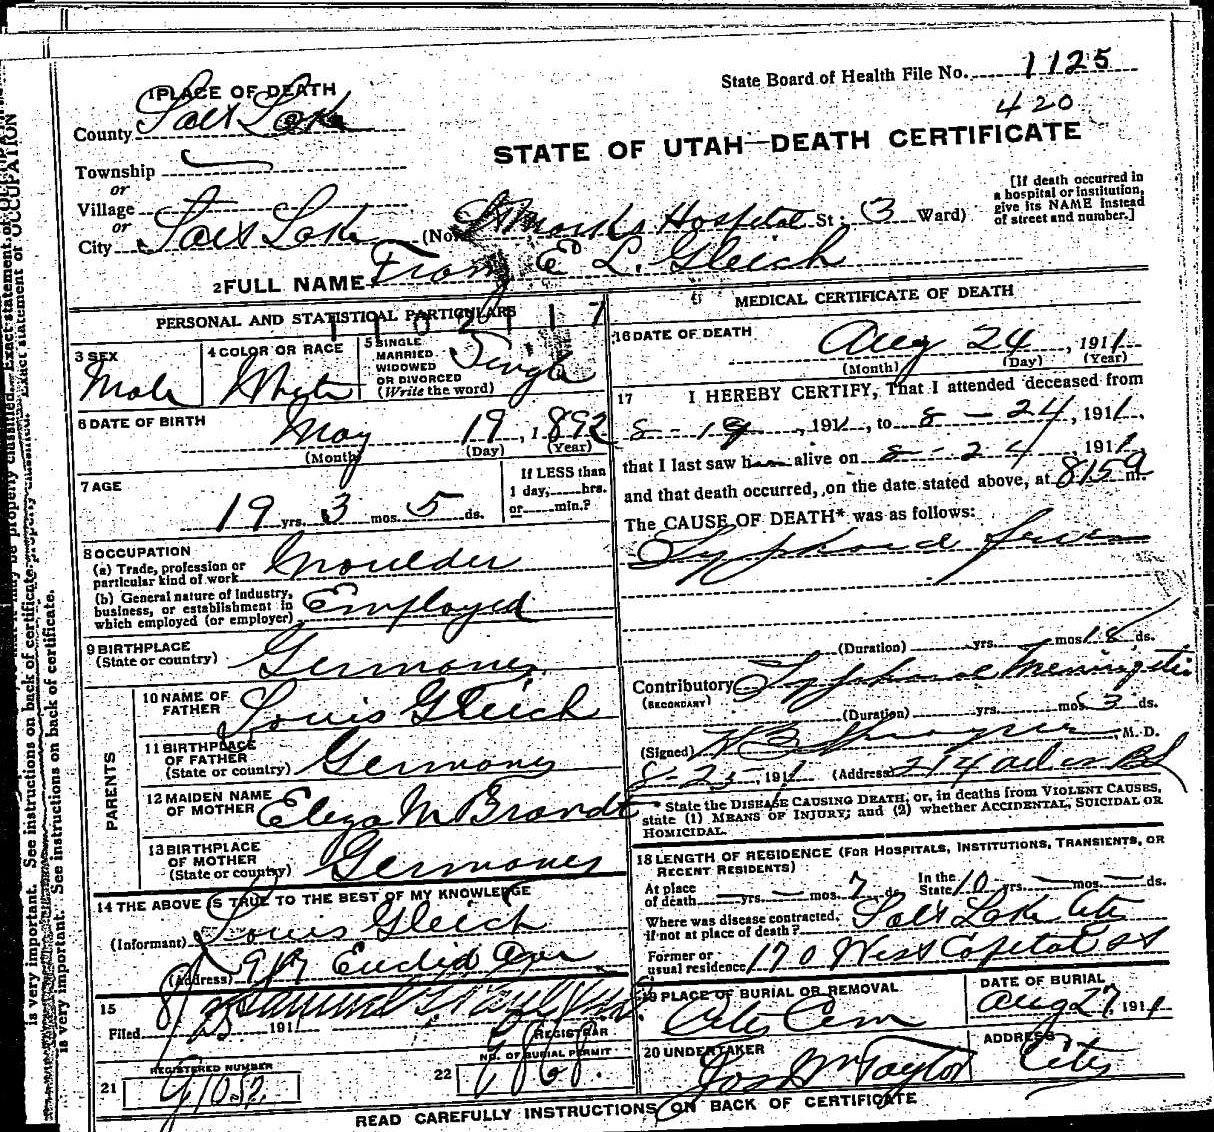 State Board of Health File No. 1125
420
1 PLACE OF DEATH
County Salt Lake
STATE OF UTAH—DEATH CERTIFICATE
Township
or
Village
or
City Salt Lake (No. St Marks Hospital St; 3 Ward)
[If death occurred in
a hospital or institution,
give its NAME instead
of street and number.]
2 FULL NAME Franz E L. Gleich
PERSONAL AND STATISTICAL PARTICULARS
3 SEX
Male
4 COLOR OR RACE
White
5 SINGLE
MARRIED
WIDOWED
OR DIVORCED
(Write the word)
Single
6 DATE OF BIRTH
May 19, 1892
(Month) (Day) (Year)
7 AGE
19 yrs. 3 mos. 5 ds.
If LESS than
1 day, hrs.
or min.?
8 OCCUPATION
(a) Trade, profession or
particular kind of work Moulder
(b) General nature of Industry,
business, or establishment in
which employed (or employer) Employed
9 BIRTHPLACE
(State or country) Germany
PARENTS
10 NAME OF
FATHER Louis Gleich
11 BIRTHPLACE
OF FATHER
(State or country) Germany
12 MAIDEN NAME
OF MOTHER Eliza M Brandt
13 BIRTHPLACE
OF MOTHER
(State or country) Germany
14 THE ABOVE IS TRUE TO THE BEST OF MY KNOWLEDGE
(Informant) Louis Gleich
(Address) Euclid Ave
15
Filed 191
REGISTRAR
REGISTERED NUMBER
21
NO. OF BURIAL PERMIT
22
MEDICAL CERTIFICATE OF DEATH
16 DATE OF DEATH
Aug 24, 1911
(Month) (Day) (Year)
17 I HEREBY CERTIFY, That I attended deceased from
8-19, 1911, to 8-24, 1911,
that I last saw him alive on 8-24, 1911
and that death occurred, on the date stated above, at 815 a m.
The CAUSE OF DEATH* was as follows:
Typhoid fever
(Duration) yrs. mos. 18 ds.
Contributory Typhoid Meningitis
(SECONDARY)
(Duration) yrs. mos. 3 ds.
(Signed) M. D.
8-25, 1911 (Address)
* State the DISEASE CAUSING DEATH; or, in deaths from VIOLENT CAUSES,
state (1) MEANS OF INJURY; and (2) whether ACCIDENTAL, SUICIDAL OR
HOMICIDAL.
18 LENGTH OF RESIDENCE (FOR HOSPITALS, INSTITUTIONS, TRANSIENTS, OR
RECENT RESIDENTS)
At place
of death — yrs. — mos. 7 ds. In the
State 10 yrs. — mos. — ds.
Where was disease contracted,
if not at place of death? Salt Lake City
Former or
usual residence 170 West Capitol St
19 PLACE OF BURIAL OR REMOVAL
City Cem
DATE OF BURIAL
Aug 27, 1911
20 UNDERTAKER
Jos Wm Taylor
ADDRESS
City
READ CAREFULLY INSTRUCTIONS ON BACK OF CERTIFICATE
is very important. See instructions on back of certificate.